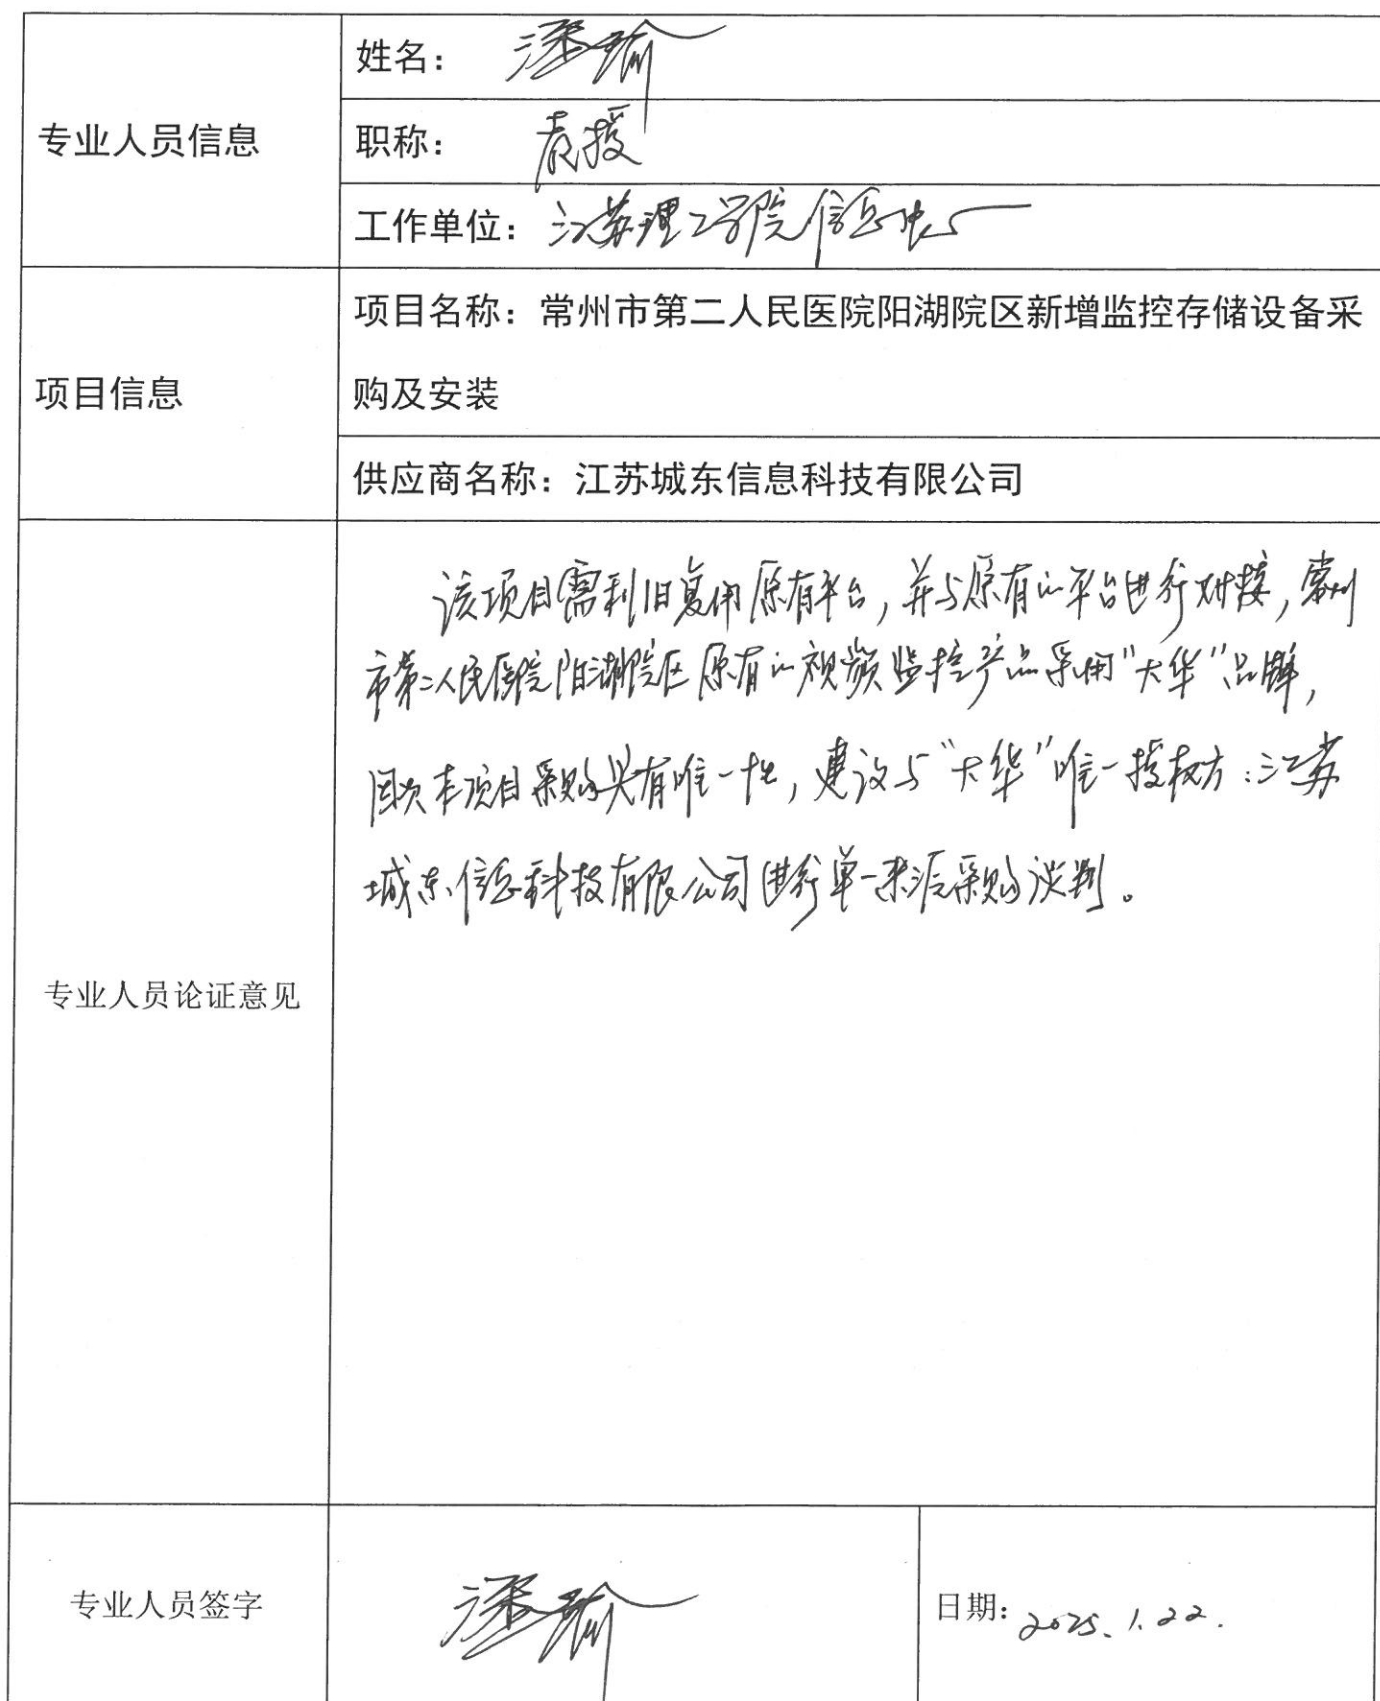 专业人员信息
姓名：潘瑜
职称：教授
工作单位：江苏理工学院信息中心
项目信息
项目名称：常州市第二人民医院阳湖院区新增监控存储设备采
购及安装
供应商名称：江苏城东信息科技有限公司
专业人员论证意见
该项目需利旧复用原有平台，并与原有的平台进行对接，常州
市第二人民医院阳湖院区原有的视频监控产品采用“大华”品牌，
因次本项目采购具有唯一性，建议与“大华”唯一授权方：江苏
城东信息科技有限公司进行单一来源采购谈判。
专业人员签字
潘瑜
日期：2025.1.22.